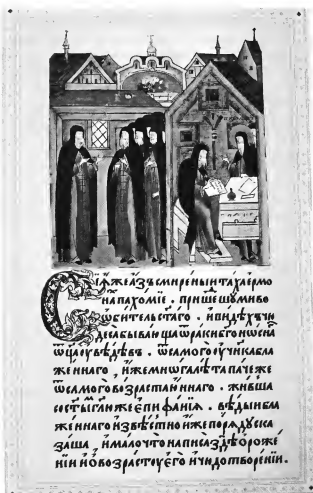 Сїѧже азъ смиреныи таха ермо
на пахомїе . пришешу ми во
ѡбитель стаго . и видѣхъ чю
деса бывающа ѿ раки бгоноснаⷢ҇
ѿца оувѣдѣвъ . ѿ самого оученика бла
женнаго . иже многа лѣта паче же
ѿ самого возраста юннаго . живша
со стымъ глю же епифанїа . вѣды и бла
женнаго извѣстно иже по рѧду сска
заша . и мало что написа здѣ о роже
нїи и о возрасту его и чюдотворенїи .